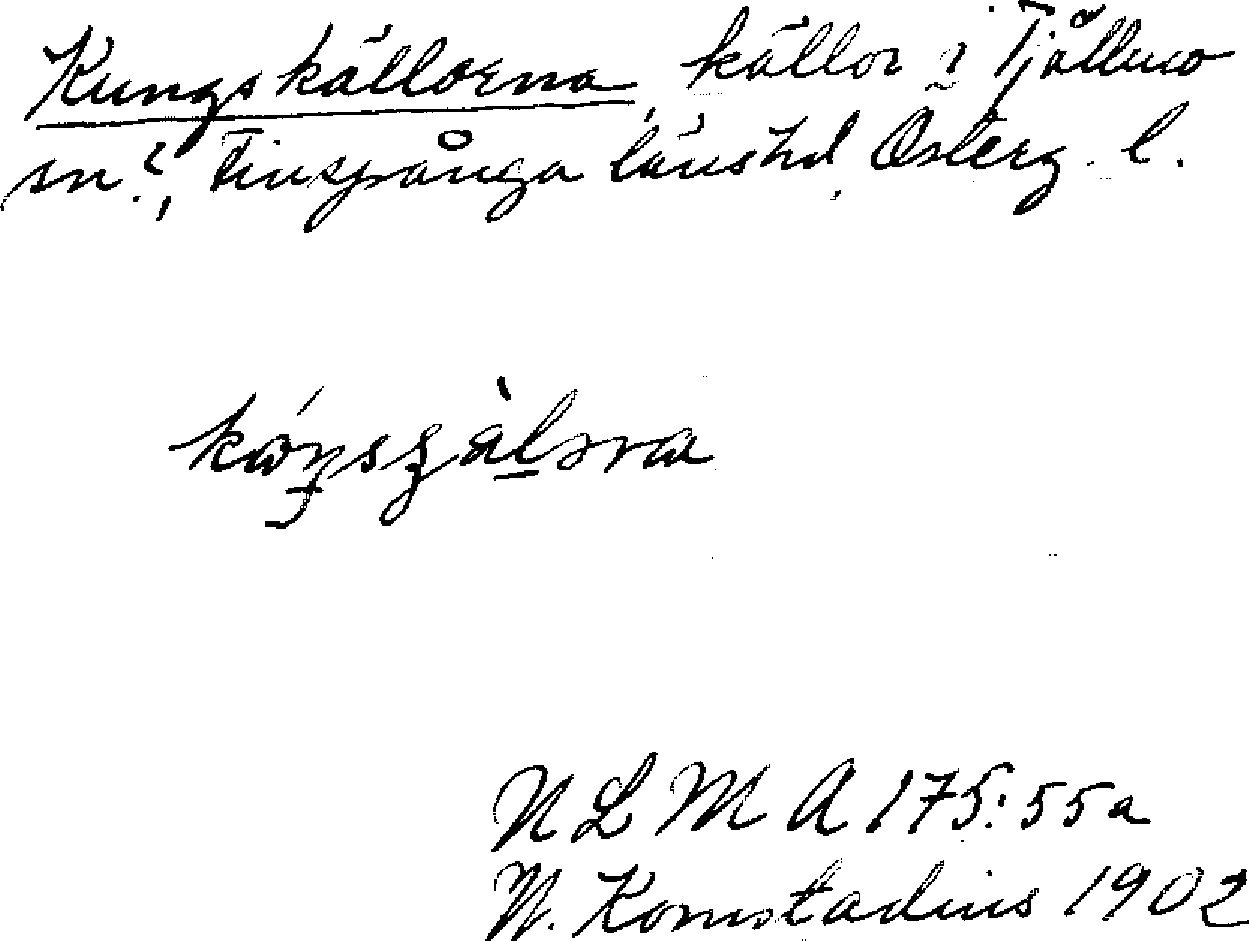 Kungskällorna, källor i Tjällmo
sn?, Finspånga länshd, Österg. l.
NLM A 175:55a
W. Komstadius 1902